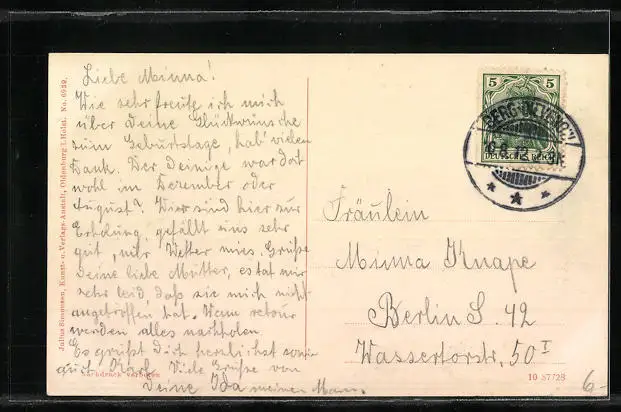 Liebe Minna!
Wie sehr freute ich mich
über Deine Glückwünsche
zum Geburtstage, hab' vielen
Dank. Der Deinige war dort
wohl im Dezember oder
August? Wir sind hier zur
Erholung, gefällt uns sehr
gut, nur Wetter mies. Grüße
Deine liebe Mutter, es tat mir
sehr leid, daß sie mich nicht
angetroffen hat. Wenn retour
werden alles nachholen.
Es grüßt Dich herzlichst sowie
auch Karl. Viele Grüße von
Deine Ida meinen Mann.
Nachdruck verboten
Julius Simonsen, Kunst- u. Verlags-Anstalt, Oldenburg i. Holst. No. 6939.
5 5
DEUTSCHES REICH
BERG
8.12
Fräulein
Minna Knape
Berlin S. 42
Wassertorstr. 50 I
10 87728
6-